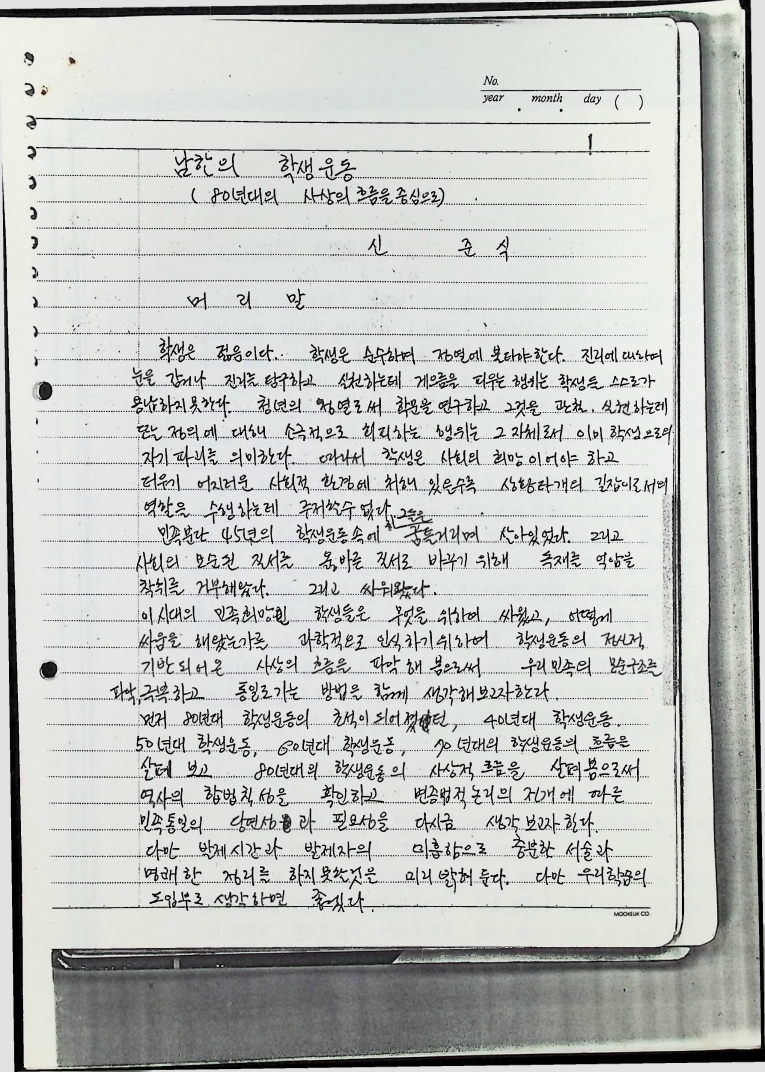 No.
year . month . day ( )
1
남한의 학생운동
( 80년대의 사상의 흐름을 중심으로)
신 준 식
머 리 말
학생은 젊음이다. 학생은 순수하며 정열에 불타야한다. 진리에 대하여
눈을 감거나 진리를 탐구하고 실천하는데 게으름을 피우는 행위는 학생들 스스로가
용납하지 못한다. 청년의 정열로써 학문을 연구하고 그것을 관철. 실현하는데
또는 정의에 대해 소극적으로 회피하는 행위는 그 자체로서 이미 학생으로의
자기 파괴를 의미한다. 따라서 학생은 사회의 희망이어야 하고
더우기 어지러운 사회적 환경에 처해 있을수록 상황타개의 길잡이로서의
역할을 수행하는데 주저할수 없다.
민족분단 45년의 학생운동속에 그들은 꿈틀거리며 살아있었다. 그리고
사회의 모순된 질서를 올바른 질서로 바꾸기 위해 독재를 억압을
착취를 거부해왔다. 그리고 싸워왔다.
이시대의 민족희망인 학생들은 무엇을 위하여 싸웠고, 어떻게
싸움을 해왔는가를 과학적으로 인식하기위하여 학생운동의 정신적
기반되어온 사상의 흐름을 파악해 봄으로써 우리민족의 모순구조를
파악,극복하고 통일로가는 방법을 함께 생각해보고자한다.
먼저 80년대 학생운동의 초석이 되어졌던, 40년대 학생운동.
50년대 학생운동, 60년대 학생운동, 70년대의 학생운동의 흐름은
살펴 보고 80년대의 학생운동의 사상적 흐름을 살펴봄으로써
역사의 합법칙성을 확인하고 변증법적논리의 전개에 따른
민족통일의 당연성과 필요성을 다시금 생각 보고자 한다.
다만 발제시간과 발제자의 미흡함으로 충분한 서술과
명쾌한 정리를 하지못한것은 미리 밝혀 둔다. 다만 우리학습의
도입부로 생각하면 좋겠다.
MOOKEUK CO.